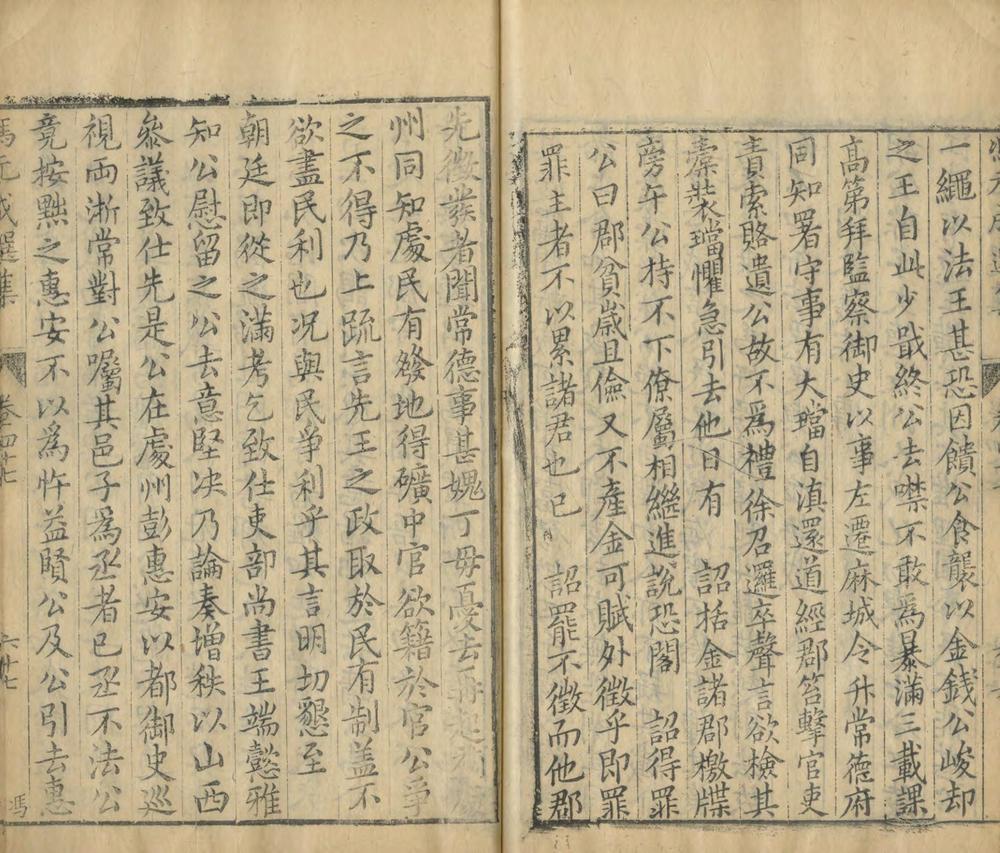 一繩以法王甚恐因饋公食襲以金錢公峻却
之王自此少戢終公去噤不敢爲暴滿三載課
高第拜監察御史以事左遷麻城令升常德府
同知署守事有大璫自滇還道經郡笞擊官吏
責索賂遺公故不爲禮徐召邏卒聲言欲檢其
橐裝璫懼急引去他日有 詔括金諸郡檄牒
旁午公持不下僚屬相繼進說恐閣 詔得罪
公曰郡貧歲且儉又不產金可賦外徵乎即罪
罪主者不以累諸君也已 詔罷不徵而他郡
先徵發者聞常德事甚媿丁毋憂去再起
州同知處民有發地得礦中官欲籍於官公爭
之不得乃上疏言先王之政取於民有制盖不
欲盡民利也况與民爭利乎其言明切懇至
朝廷即從之滿考乞致仕吏部尚書王端懿雅
知公慰留之公去意堅决乃論奏增秩以山西
叅議致仕先是公在處州彭惠安以都御史巡
視兩淅常對公囑其邑子爲丞者已丞不法公
竟按黜之惠安不以爲忤益賢公及公引去惠
馮元成選集 卷四十七 六廿七
馮